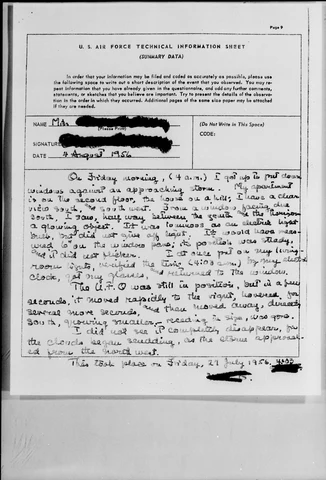 Page 9
U. S. AIR FORCE TECHNICAL INFORMATION SHEET
(SUMMARY DATA)
In order that your information may be filed and coded as accurately as possible, please use
the following space to write out a short description of the event that you observed. You may re-
peat information that you have already given in the questionnaire, and add any further comments,
statements, or sketches that you believe are important. Try to present the details of the observa-
tion in the order in which they occurred. Additional pages of the same size paper may be attached
if they are needed.
NAME Mr.
(Please Print)
(Do Not Write in This Space)
CODE:
SIGNATURE
DATE 4 August 1956
On Friday morning, (4 a.m.) I got up to put down
windows against an approaching storm. My apartment
is on the second floor, the house on a hill; I have a clear
view south, and south west. From a window facing due
south, I saw, half way between the zenith and the horizon
a glowing object. It was luminous as an electric light
bulb, but did not give off light. It would have meas-
ured 1/2" on the window pane; its position was steady,
and it did not flicker. I at once put on my living-
room lights, verified the time (4:03 a.m.) by my electric
clock, got my glasses, and returned to the window.
The U.F.O was still in position, but in a few
seconds, it moved rapidly to the right, hovered for
several more seconds, and then moved away, directly
south, growing smaller, receding in size, was gone.
I did not see it completely disappear, for
the clouds began scudding, as the storm approach-
ed from the north west.
This took place on Friday, 27 July 1956.